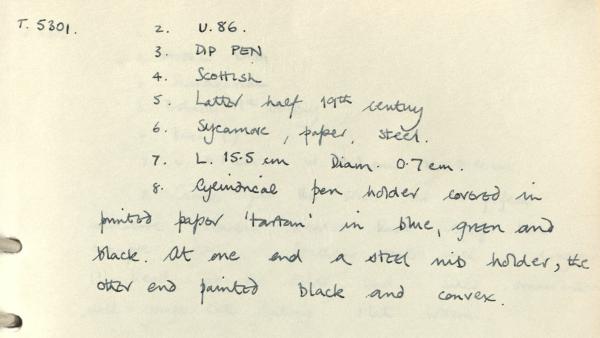 T. 5301. 2. U.86.
3. DIP PEN
4. Scottish
5. Latter half 19th century
6. Sycamore, paper, steel.
7. L. 15.5 cm Diam. 0.7 cm.
8. Cylindrical pen holder covered in
printed paper 'tartan' in blue, green and
black. At one end a steel nib holder, the
other end painted black and convex.